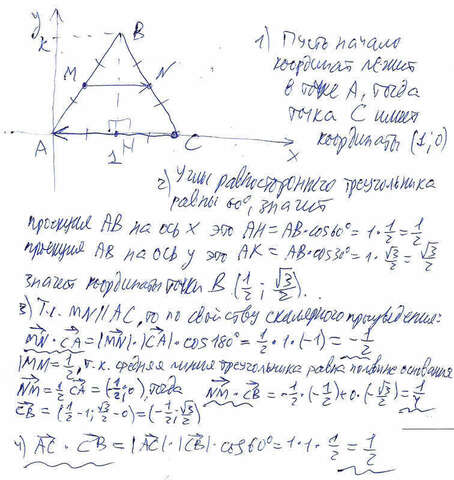 y
K
B
M
N
A
1
H
C
x
1) Пусть начало
координат лежит
в точке A, тогда
точка C имеет
координаты (1; 0)
2) Углы равностороннего треугольника
равны 60°, значит
проекция AB на ось x это AH = AB·cos60° = 1·1/2 = 1/2
проекция AB на ось y это AK = AB·cos30° = 1·√3/2 = √3/2
значит координаты точки B (1/2; √3/2).
3) Т.к. MN||AC, то по свойству скалярного произведения:
MN·CA = |MN|·|CA|·cos180° = 1/2·1·(-1) = -1/2
|MN| = 1/2, т.к. средняя линия треугольника равна половине основания
NM = 1/2 CA = (-1/2; 0), тогда NM·CB = -1/2·(-1/2)+0·(-√3/2) = 1/4
CB = (1/2-1; √3/2-0) = (-1/2; √3/2)
4) AC·CB = |AC|·|CB|·cos60° = 1·1·1/2 = 1/2